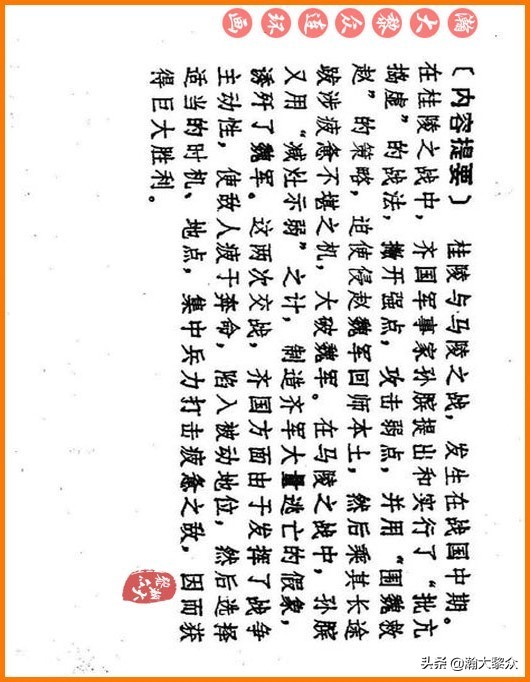 瀚大黎众连环画
〔内容提要〕 桂陵与马陵之战,发生在战国中期。
在桂陵之战中,齐国军事家孙膑提出和实行了“批亢
捣虚”的战法,撇开强点,攻击弱点,并用“围魏救
赵”的策略,迫使侵赵魏军回师本土,然后乘其长途
跋涉疲惫不堪之机,大破魏军。在马陵之战中,孙膑
又用“减灶示弱”之计,制造齐军大量逃亡的假象,
诱歼了魏军。这两次交战,齐国方面由于发挥了战争
主动性,使敌人疲于奔命,陷入被动地位,然后选择
适当的时机、地点,集中兵力打击疲惫之敌,因而获
得巨大胜利。
瀚大黎众
头条 @瀚大黎众